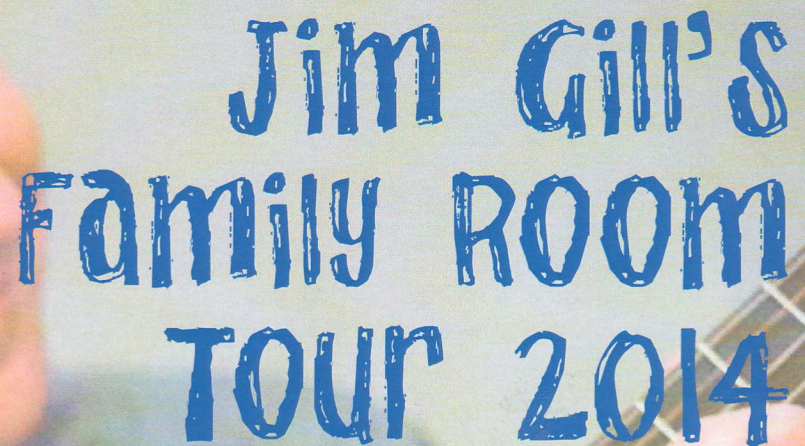 Jim Gill's
Family Room
Tour 2014